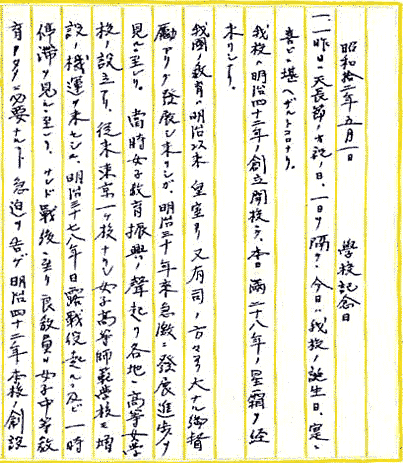 昭和拾二年五月一日　學校記念日
一、一昨日ハ天長節ノ大祝ノ日、一日ヲ隔テ、今日ハ我校ノ誕生日、寔ニ
喜ビニ堪ヘザルトコロナリ。
我校ハ明治四十二年ノ創立開校ニテ、本日滿二十八年ノ星霜ヲ経
來リシナリ。
我國ノ教育ハ明治以來 皇室ヨリ又有司ノ方々ヨリ大ナル御督
勵アリテ發展シ來リシガ、明治三十年來急激ニ發展進歩ヲ
見ルニ至レリ。當時女子教育振興ノ聲起リ各地ニ高等女學
校ノ設立アリ、従来東京一ヶ校ナリシ女子高等師範學校モ増
設ノ機運ヲ来セシモ、明治三十七八年日露戰役起ルニ及ビ一時
停滞ヲ見ルニ至レリ、サレド戰後ニ至リ良教員ヲ女子中等教
育ノタメニ必要ナルコト急迫ヲ告ゲ明治四十二年本校ノ創設